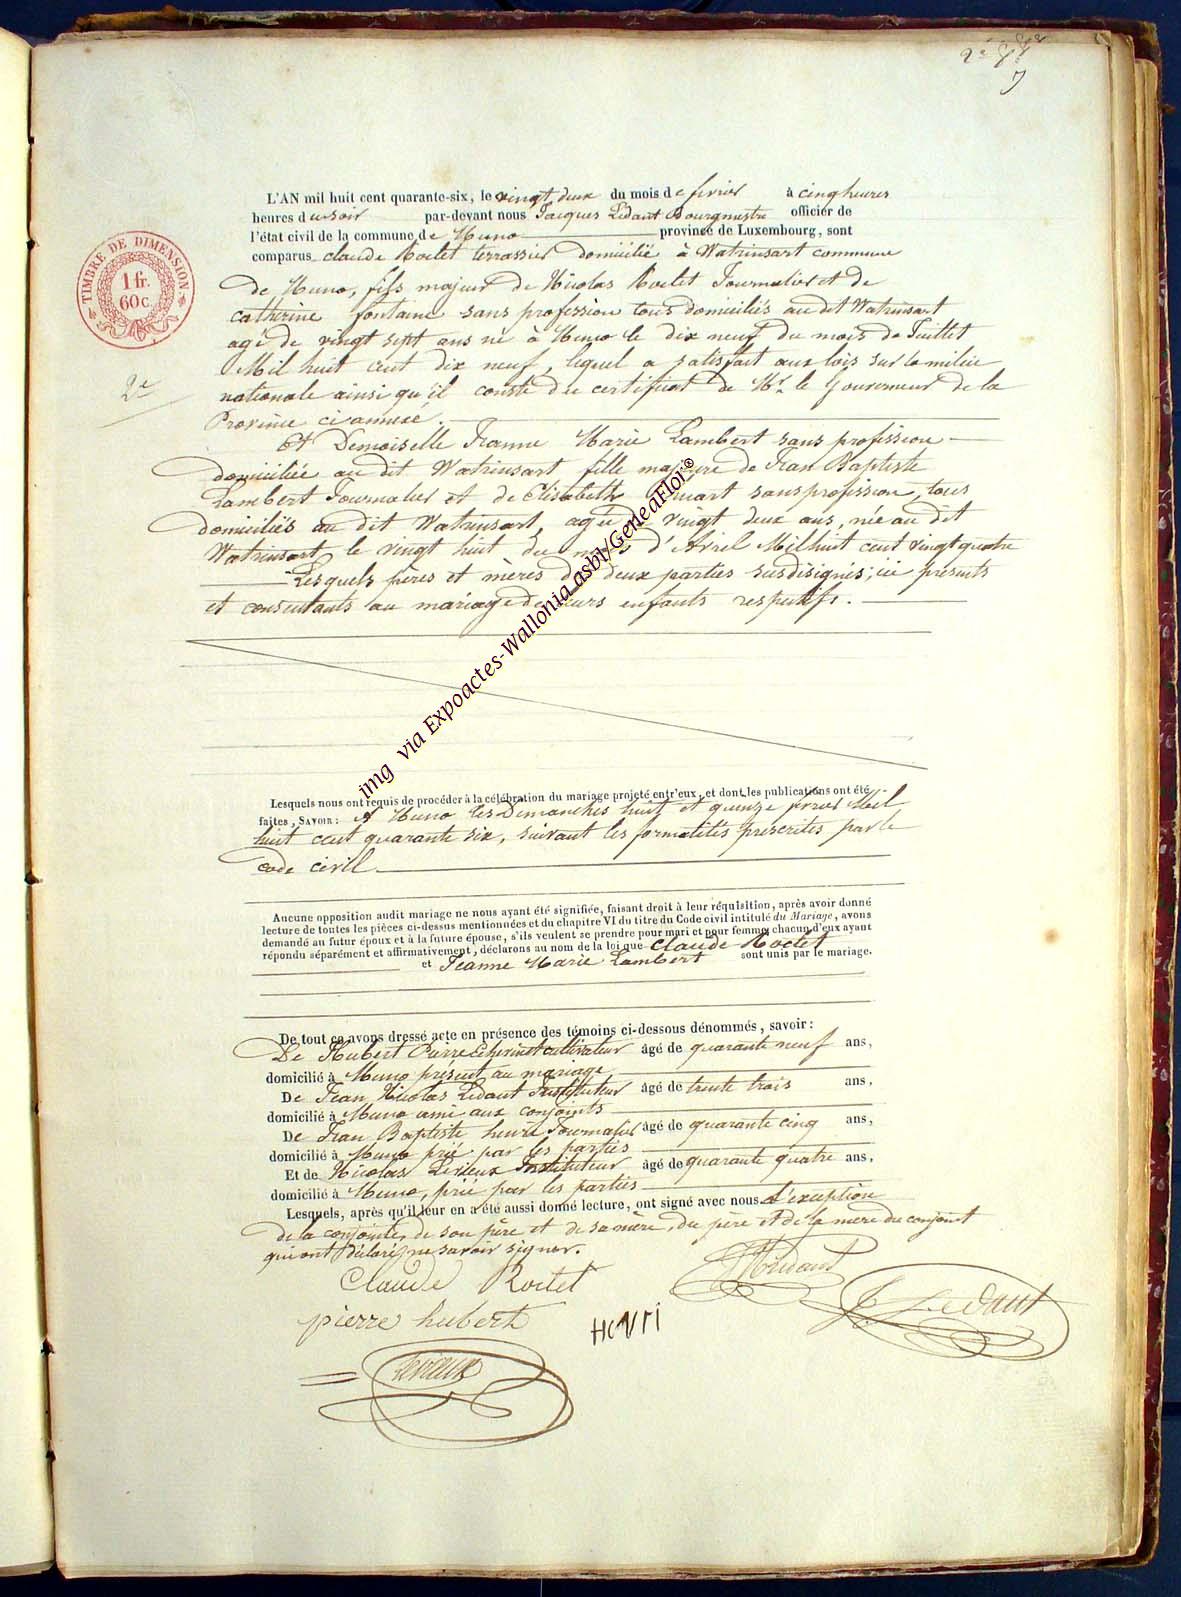 TIMBRE DE DIMENSION
1 fr.
60 c.
2e
L'AN mil huit cent quarante-six, le vingt deux du mois de fevrier à cinq heures
heures du soir par-devant nous Jacques Ledant Bourgmestre officier de
l'état civil de la commune de Muno province de Luxembourg, sont
comparus claude Roelet terrassier domicilié à Watrinsart commune
de Muno, fils majeur de Nicolas Roelet Journalier et de
catherine fontaine sans profession tous domiciliés au dit Watrinsart
agé de vingt sept ans né à Muno le dix neuf du mois de Juillet
Mil huit cent dix neuf, lequel a satisfait aux lois sur la milice
nationale ainsi qu'il conste du certificat de Mr. le Gouverneur de la
Province ci annexé.
Et Demoiselle Jeanne Marie Lambert sans profession
domiciliée au dit Watrinsart fille majeure de Jean Baptiste
Lambert Journalier et de Elisabeth sans profession, tous
domiciliés au dit Watrinsart, agée de vingt deux ans, née au dit
Watrinsart le vingt huit du mois d'Avril Mil huit cent vingt quatre
Lesquels pères et mères des deux parties susdésignés, ici présents
et consentants au mariage de leurs enfants respectifs.
img via Expoactes-Wallonia asbl/GeneaFloi®
Lesquels nous ont requis de procéder à la célébration du mariage projeté entr'eux, et dont les publications ont été
faites, SAVOIR : A Muno les Demanches huit et quinze fevrier Mil
huit cent quarante six, suivant les formalités prescrites par le
code civil
Aucune opposition audit mariage ne nous ayant été signifiée, faisant droit à leur réquisition, après avoir donné
lecture de toutes les pièces ci-dessus mentionnées et du chapitre VI du titre du Code civil intitulé du Mariage, avons
demandé au futur époux et à la future épouse, s'ils veulent se prendre pour mari et pour femme, chacun d'eux ayant
répondu séparément et affirmativement, déclarons au nom de la loi que Claude Roelet
et Jeanne Marie Lambert sont unis par le mariage.
De tout ce avons dressé acte en présence des témoins ci-dessous dénommés, savoir :
De Hubert Pierre cultivateur âgé de quarante neuf ans,
domicilié à Muno présent au mariage
De Jean Nicolas Ledant Instituteur âgé de trente trois ans,
domicilié à Muno ami aux conjoints
De Jean Baptiste henri Journalier âgé de quarante cinq ans,
domicilié à Muno prié par les parties
Et de Nicolas Levieux Instituteur âgé de quarante quatre ans,
domicilié à Muno, prié par les parties
Lesquels, après qu'il leur en a été aussi donné lecture, ont signé avec nous à l'exception
de la conjointe, de son père et de sa mère, du père et de la mère du conjoint
qui ont déclaré ne savoir signer.
Claude Roelet
pierre hubert
Henri
Ledant
Levieux